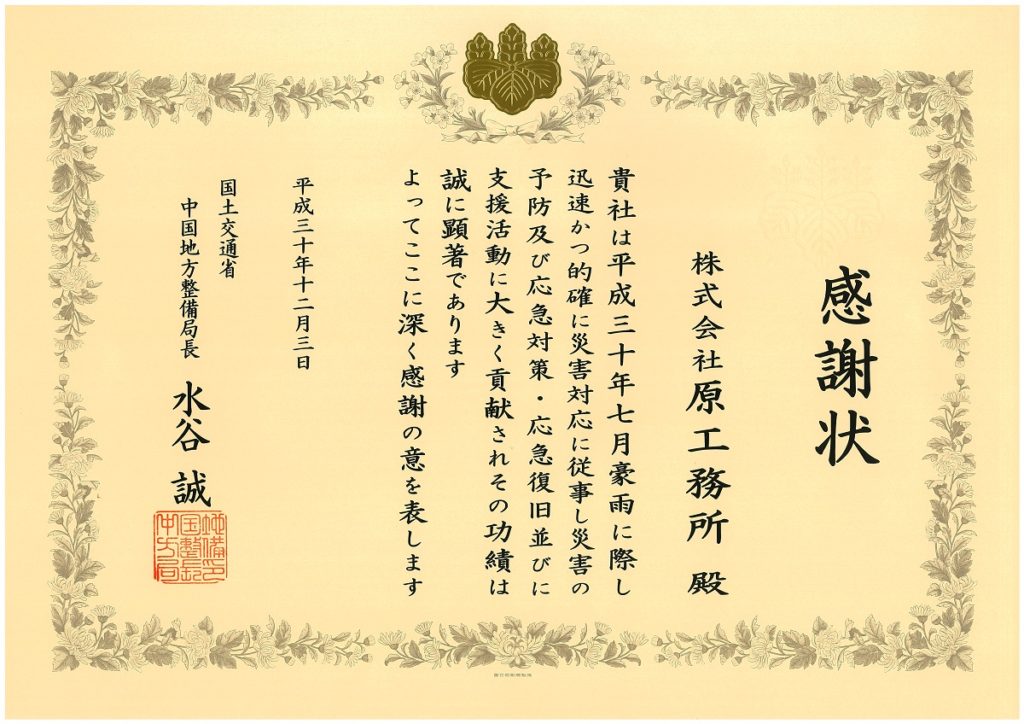 感謝状
株式会社原工務所 殿
貴社は平成三十年七月豪雨に際し
迅速かつ的確に災害対応に従事し災害の
予防及び応急対策・応急復旧並びに
支援活動に大きく貢献されその功績は
誠に顕著であります
よってここに深く感謝の意を表します
平成三十年十二月三日
国土交通省
中国地方整備局長 水谷 誠